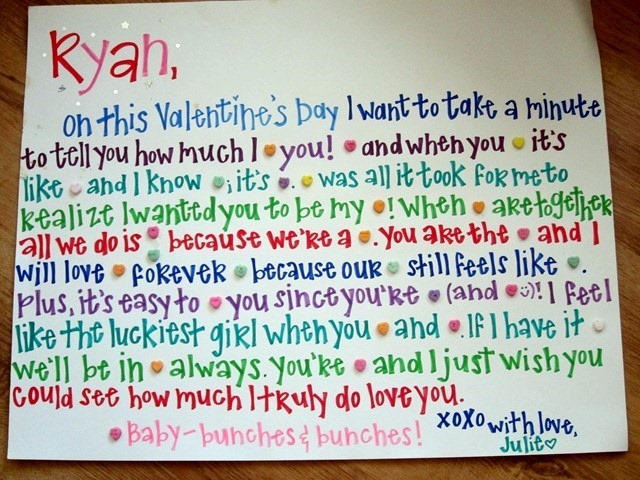 Ryan,
On this Valentine's Day I want to take a minute
to tell you how much I you! and when you it's
like and I know ; it's was all it took for me to
realize I wanted you to be my ! When are together
all we do is because we're a . You are the and I
will love forever because our still feels like .
Plus, it's easy to you since you're (and :)! I feel
like the luckiest girl when you and . If I have it
we'll be in always. You're and I just wish you
could see how much I truly do love you.
Baby-bunches & bunches!
XOXO with love,
Julie♡